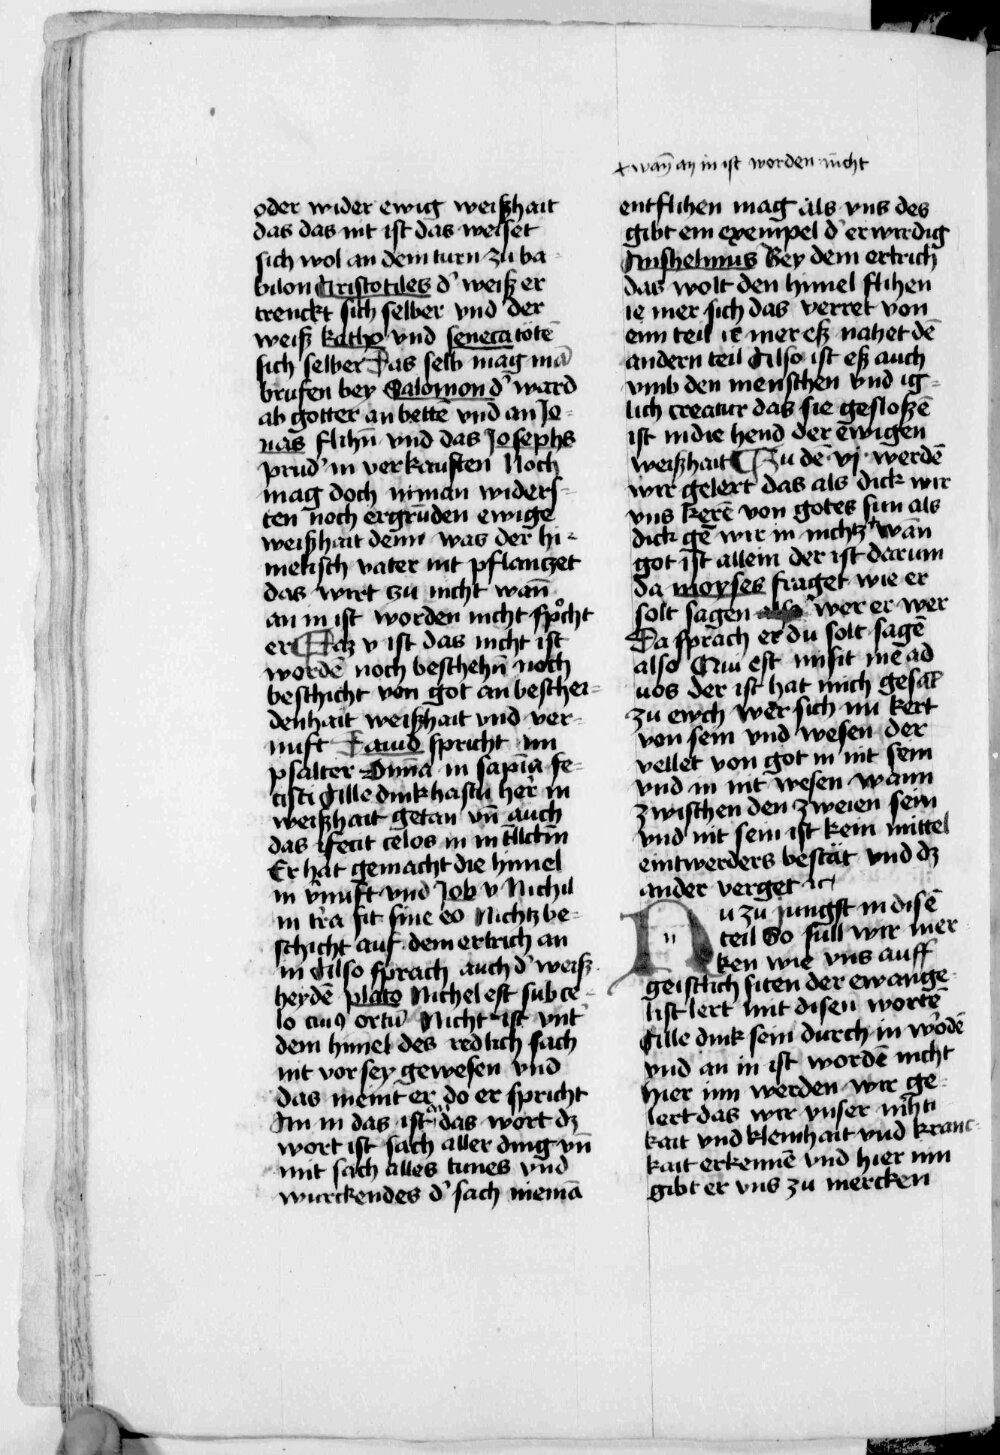 oder wider ewig weißhait
das das nit ist das weiset
sich wol an dem turn zu ba-
bilon Aristotiles d' weiß er
trenckt sich selber vnd der
weiß katho vnd seneca tötē
sich selber Das selb mag mā
brufen bey Salomon d' ward
ab gotter an bettē vnd an Jo-
nas flihn̄ vnd das Josephs
prud' in verkauften Noch
mag doch niman widers-
ten noch ergrūden ewige
weißhait denn was der hi-
melisch vater nit pflanczet
das wirt zu nicht wan̄
an in ist worden nicht sp°cht
er Daz v ist das nicht ist
wordē noch beschehn̄ noch
beschicht von got an beschei-
denhait weißhait vnd ver-
nuft Dauid spricht im
psalter Omn̄ia in sapīa fe-
cisti Alle dink hastu her in
weißhait getan vn̄ auch
das Fecit celos in intllctm̄
Er hat gemacht die himel
in v'nuft vnd Job v Nichil
in t'ra fit sine eo Nichtz be-
schicht auf dem ertrich an
in Also sprach auch d' weiß
heydē plato Nichel est sub ce-
lo cui9 ortū Nicht ist vnt'
dem himel des redlich sach
nit vor sey gewesen vnd
das meint er do er spricht
Im in das ist an das wort dz
wort ist sach aller ding vn̄
mit sach alles tunes vnd
wurckendes d' sach niemā
x wan̄ an in ist worden nicht
entflihen mag als vns des
gibt ein exempel d' erwirdig
Anshelmus Bey dem ertrich
das wolt den himel flihen
ie mer sich das verret von
einn teil ie mer eß nahet dē
andern teil Also ist eß auch
vmb den menschen vnd ig-
lich creatur das sie gesloßē
ist in die hend der ewigen
weißhait Zu dē vj werdē
wir gelert das als dick wir
vns kerē von gotes sun als
dick gē wir in nichtz wān
got ist allein der ist darum
da moyses fraget wie er
solt sagen wer er wer
Da sprach er du solt sagē
also Qui est misit me ad
uos der ist hat mich gesāt
zu ewch wer sich nu kert
von sein vnd wesen der
vellet von got in nit sein
vnd in nit wesen wann
zwischen den zweien sein
vnd nit sein ist kein mittel
eintwerders bestāt vnd dz
ander verget ꝛc
Nu zu jungst in disē
teil So süll wir mer
ken wie vns auff
geistlich siten der ewange-
list lert mit disen wortē
Alle dink sein durch in w'odē
vnd an in ist wordē nicht
hier inn werden wir ge-
lert das wir vnser nihti
kait vnd kleinhait vnd kranc-
kait erkennē vnd hier inn
gibt er vns zu mercken